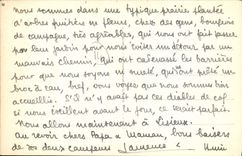 nous sommes dans une typique prairie plantée
d'arbres fruitiers en fleurs, chez des gens, bourgeois
de campagne, très agréables, qui nous ont fait passer
par leur jardin pour nous éviter un détour par un
mauvais chemin, qui ont cadenassé les barrières
pour que nous soyons en sureté, qui ont prêté un
broc à eau, bref, vous voyez que nous sommes bien
accueillis. S'il n'y avait pas ces diables de coqs
qui nous éveillent avant le jour, ce serait parfait.
Nous allons maintenant à Lisieux.
Au revoir chers Papa et Maman, bons baisers
de vos deux campeurs